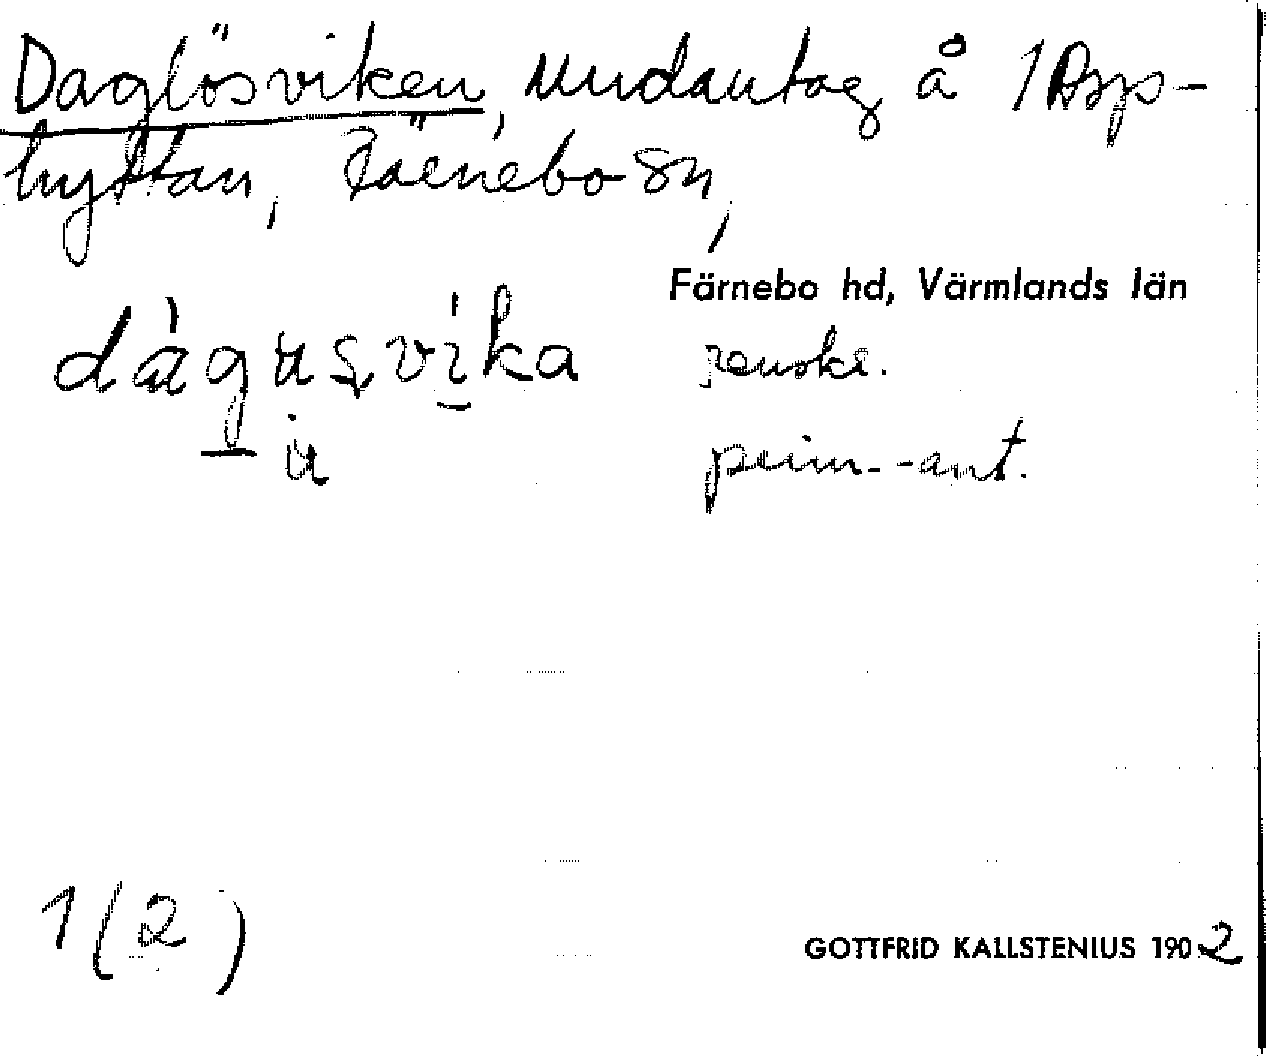 Daglösviken, Undantag å 1 Asp-
hyttan, Färnebo sn,
Färnebo hd, Värmlands län
dágusvika renskr.
u
prim.-ant.
1(2)
GOTTFRID KALLSTENIUS 1902